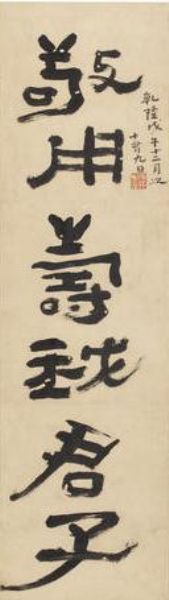 乾隆戊午十二月次
十有九日
敬用壽我君子